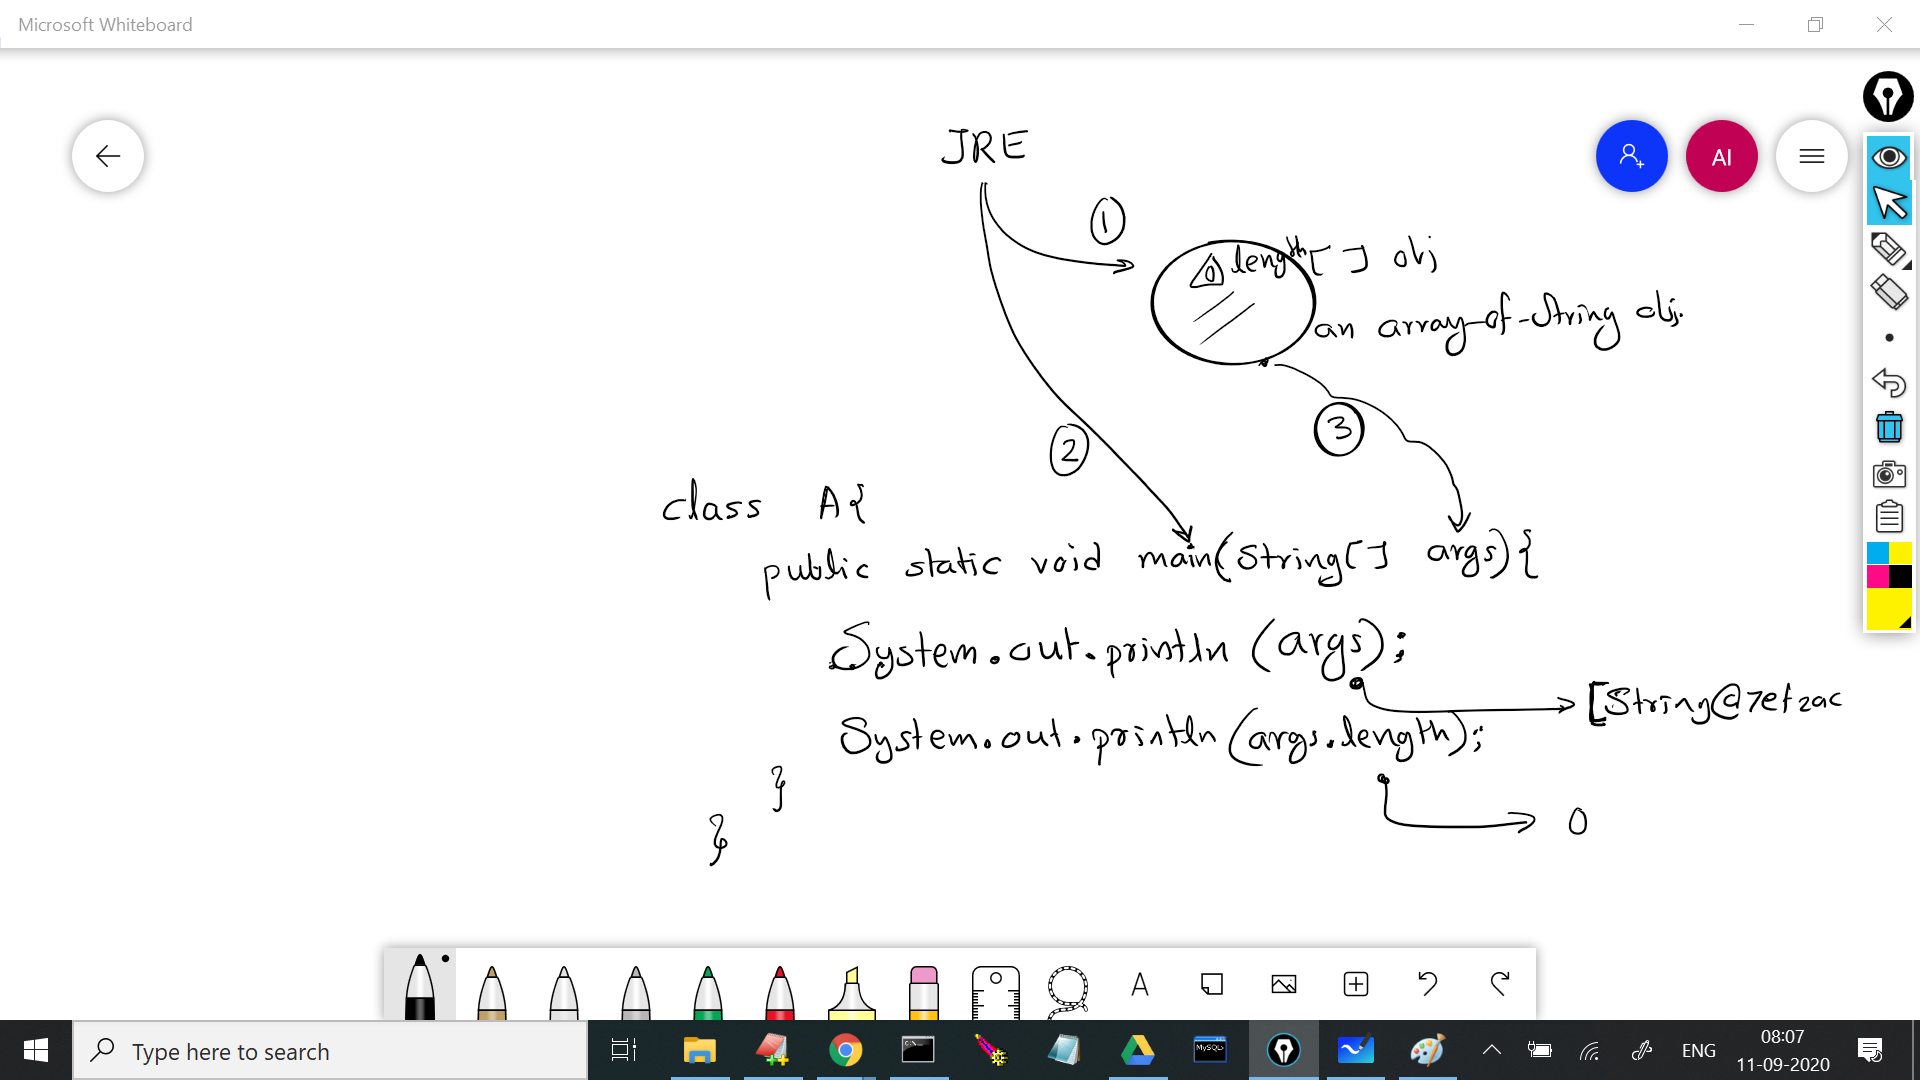 Microsoft Whiteboard
JRE
AI
1
0 length [ ] obj
an array-of-String obj.
3
2
class A{
public static void main(String[] args){
System.out.println(args);
[String@7ef2ac
System.out.println(args.length);
}
0
}
A
Type here to search
C:\
MySQL
ENG
08:07
11-09-2020